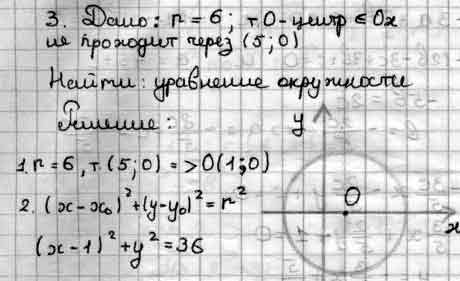 3. Дано: r = 6; т.О-центр ∈ Ox
не проходит через (5; 0)
Найти: уравнение окружности
Решение:
y
1. r = 6, т. (5; 0) => O(1; 0)
O
x
2. (x - x₀)² + (y - y₀)² = r²
(x - 1)² + y² = 36